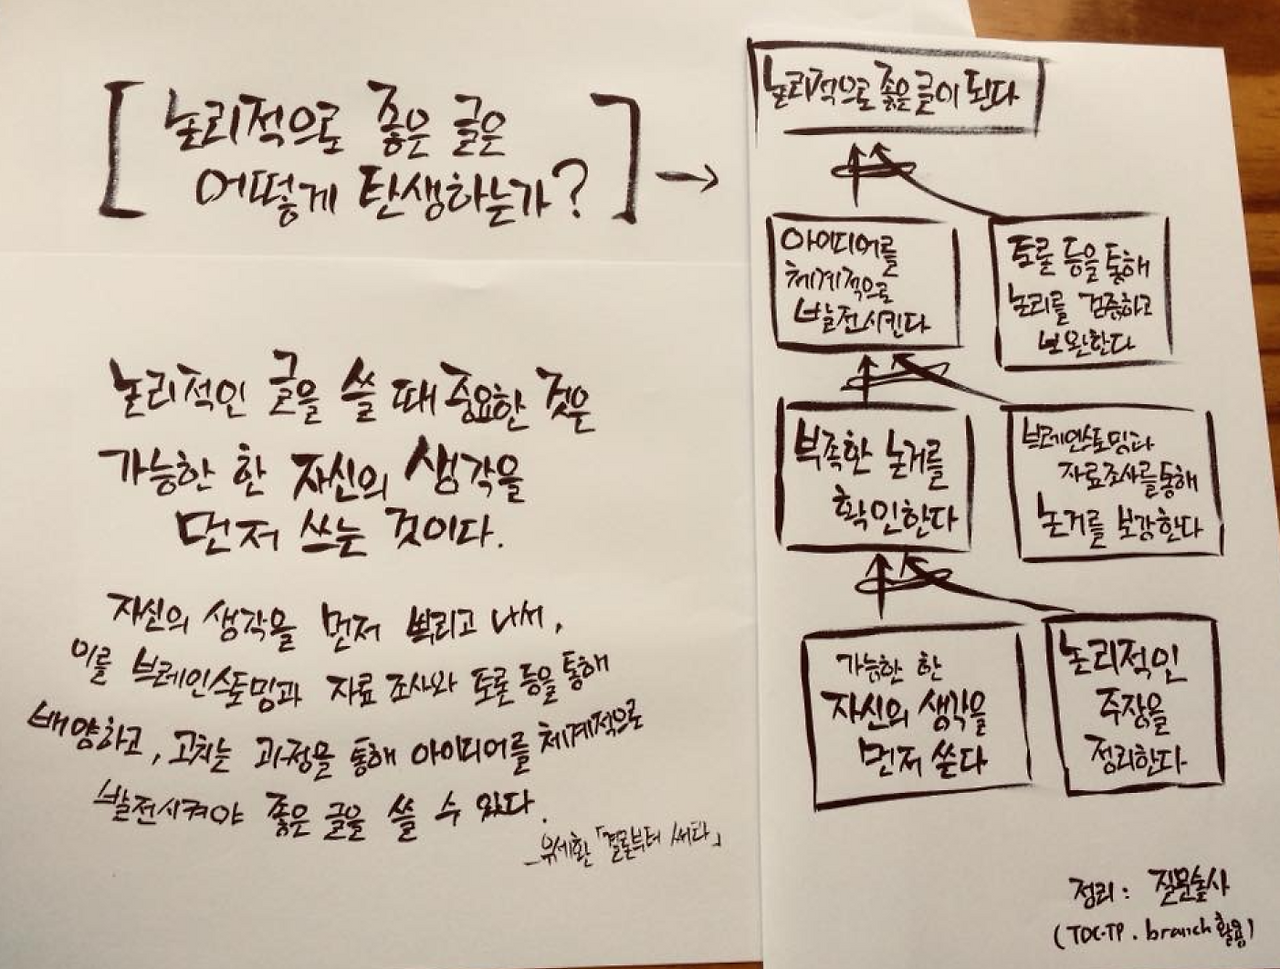 [논리적으로 좋은 글은
어떻게 탄생하는가?] →
논리적인 글을 쓸 때 중요한 것은
가능한 한 자신의 생각을
먼저 쓰는 것이다.
자신의 생각을 먼저 뿌리고 나서,
이를 브레인스토밍과 자료 조사와 토론 등을 통해
배양하고, 고치는 과정을 통해 아이디어를 체계적으로
발전시켜야 좋은 글을 쓸 수 있다.
_유세환 「결론부터 써라」
논리적으로 좋은 글이 된다
아이디어를
체계적으로
발전시킨다
토론 등을 통해
논리를 검증하고
보완한다
부족한 논거를
확인한다
브레인스토밍과
자료조사를 통해
논거를 보강한다
가능한 한
자신의 생각을
먼저 쓴다
논리적인
주장을
정리한다
정리 : 질문술사
(TOC-TP. branch 활용)